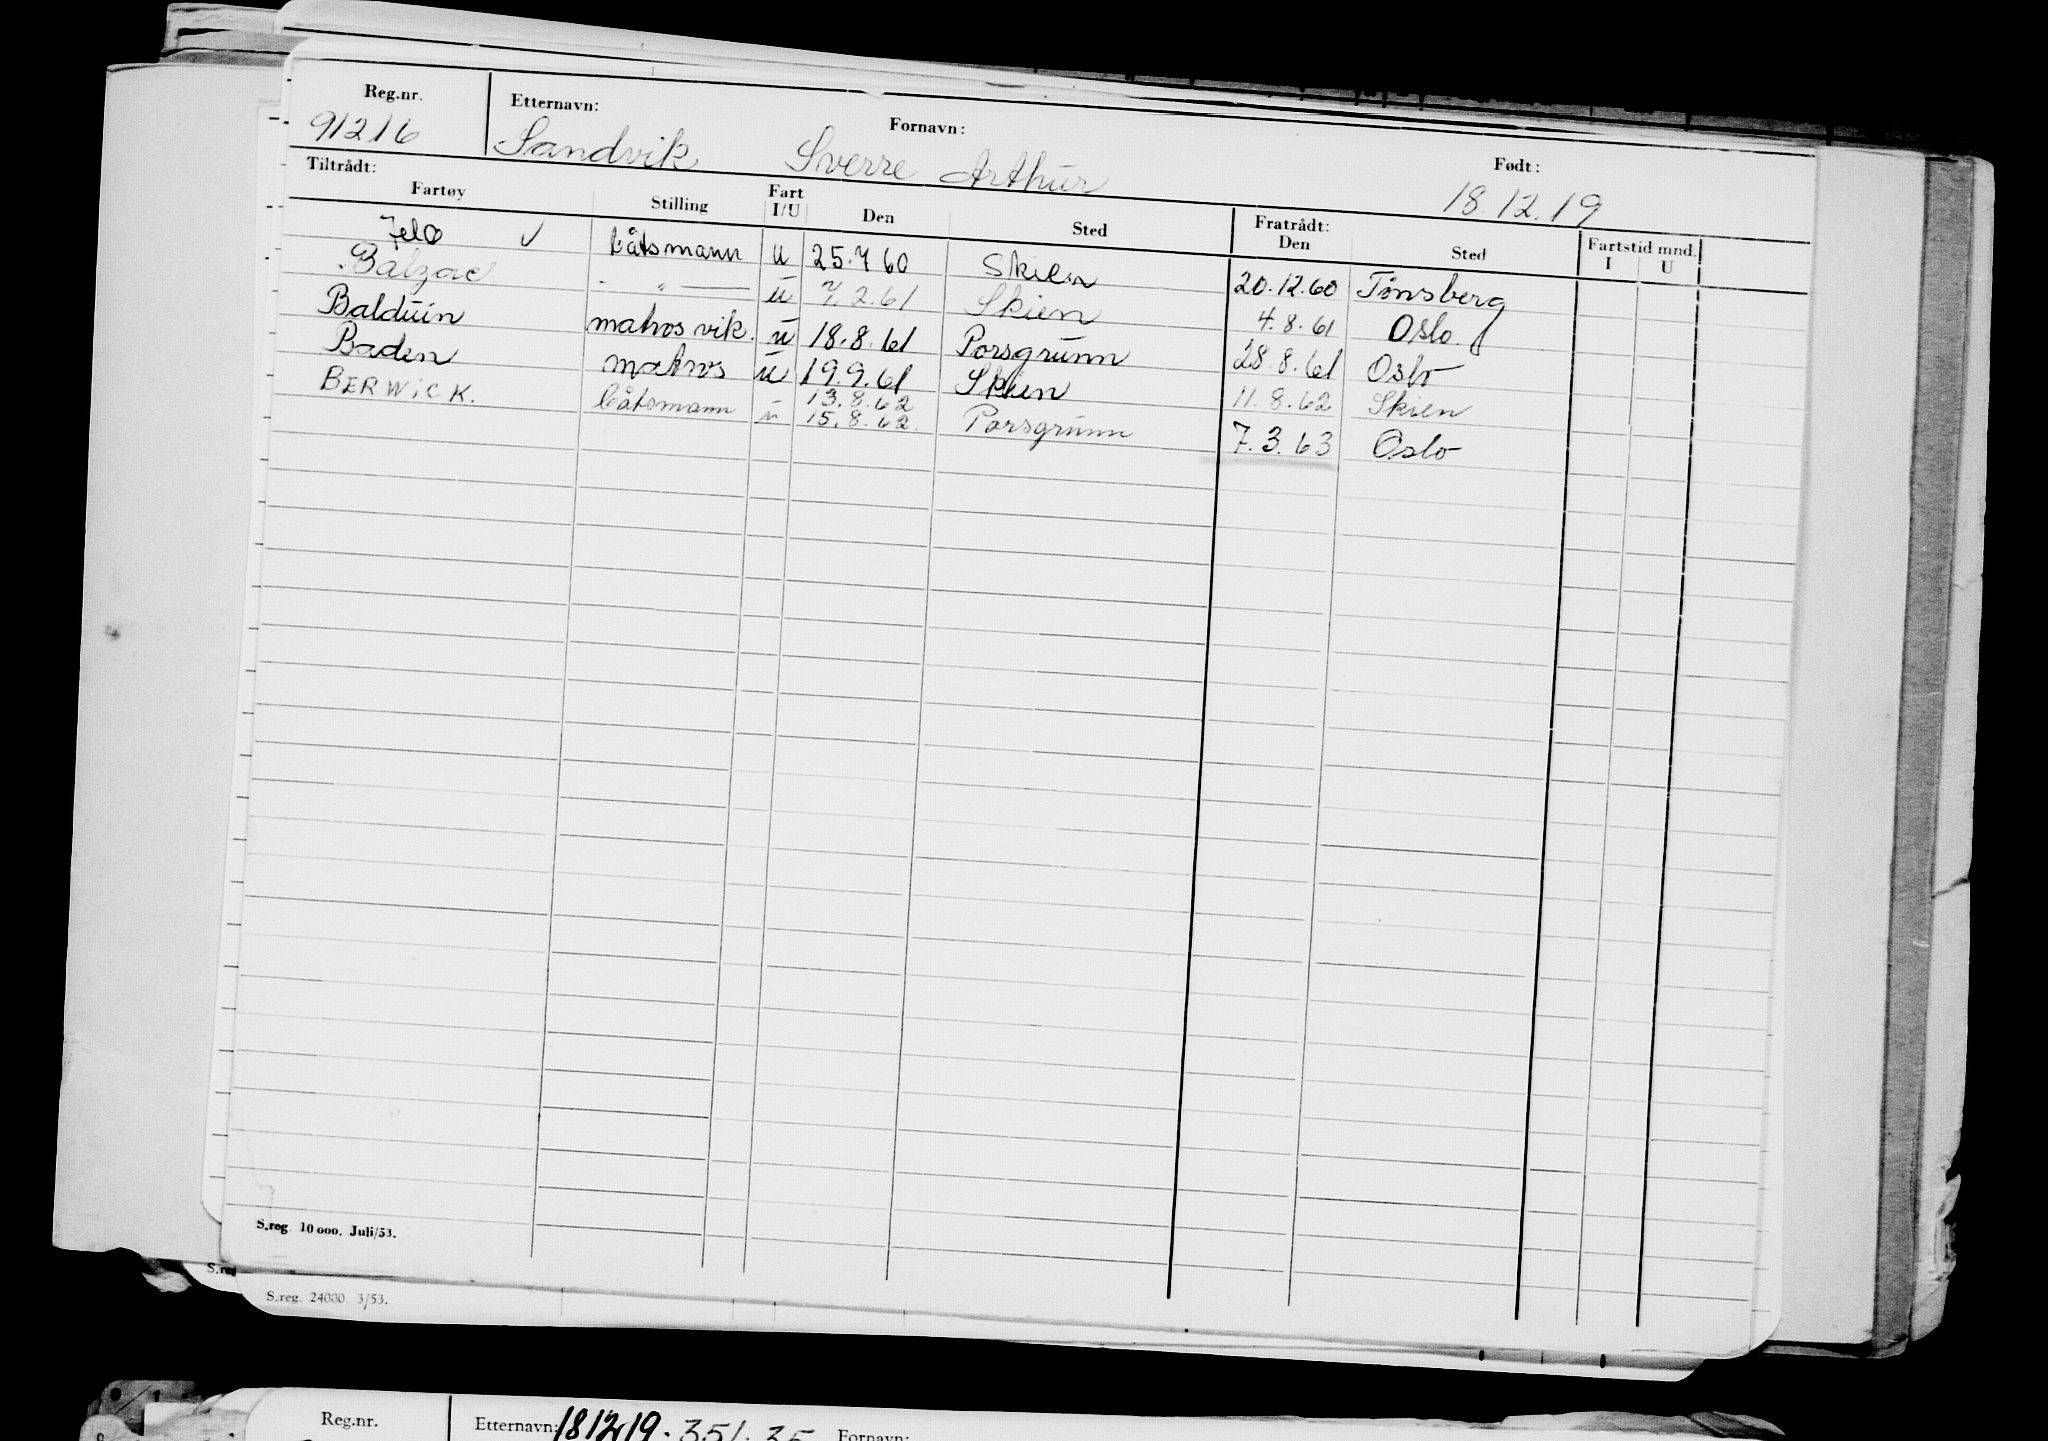 Reg.nr. Etternavn: Fornavn: Født:
91216 Sandvik Sverre Arthur 18.12.19
Tiltrådt: Fratrådt:
Fartøy Stilling Fart I/U Den Sted Den Sted Fartstid mnd. I U
Jelø ✓ båtsmann u 25.7.60 Skien 20.12.60 Tønsberg
Balzac - " - u 7.2.61 Skien 4.8.61 Oslo
Balduin matros vik. u 18.8.61 Porsgrunn 28.8.61 Oslo
Baden matros u 19.9.61 Skien 11.8.62 Skien
BERWICK. båtsmann u 13.8.62 15.8.62. Porsgrunn 7.3.63 Oslo
S.reg. 10 000. Juli/53.
S.reg. 24000. 3/53.
Reg.nr. Etternavn: 181219. 351.35 Fornavn: